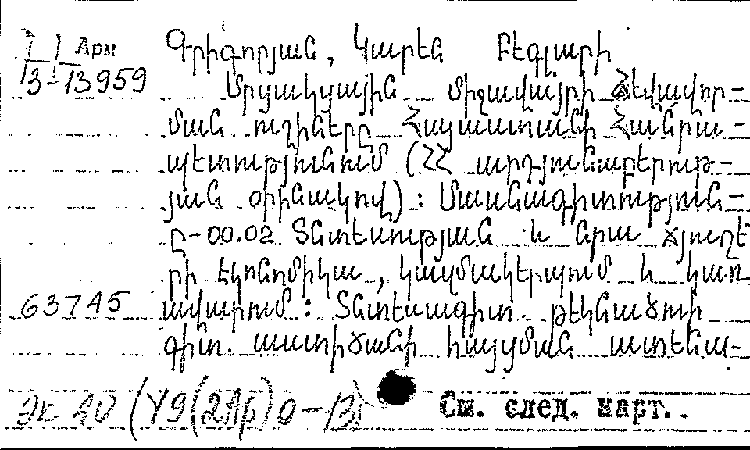 Арм Գրիգորյան, Կարեն Բեգլարի
13-13959 Մրցակցային միջավայրի ձևավոր-
ման ուղիները Հայաստանի Հանրա-
պետությունում (ՀՀ արդյունաբերութ-
յան օրինակով) : Մասնագիտություն-
ը-00.02 Տնտեսության և նրա ճյուղե
րի էկոնոմիկա, կազմակերպում և կառ
63745 ավարում : Տնտեսագիտ. թեկնածուի
գիտ. աստիճանի հայցման ատենա-
Эк АО (У9(2Ар)0-13)
См. след. карт.